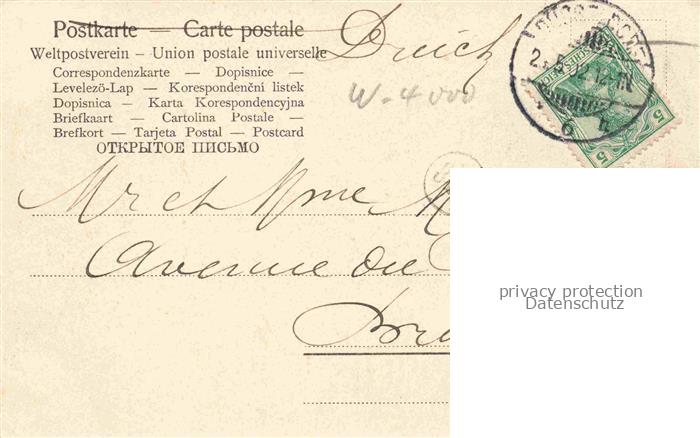 Postkarte — Carte postale
Weltpostverein – Union postale universelle
Correspondenzkarte — Dopisnice —
Levelezö-Lap — Korespondenční listek
Dopisnica — Karta Korespondencyjna
Briefkaart — Cartolina Postale —
Brefkort — Tarjeta Postal — Postcard
ОТКРЫТОЕ ПИСЬМО
W-4000
5
5
Mr et Mme
Avenue du
privacy protection
Datenschutz